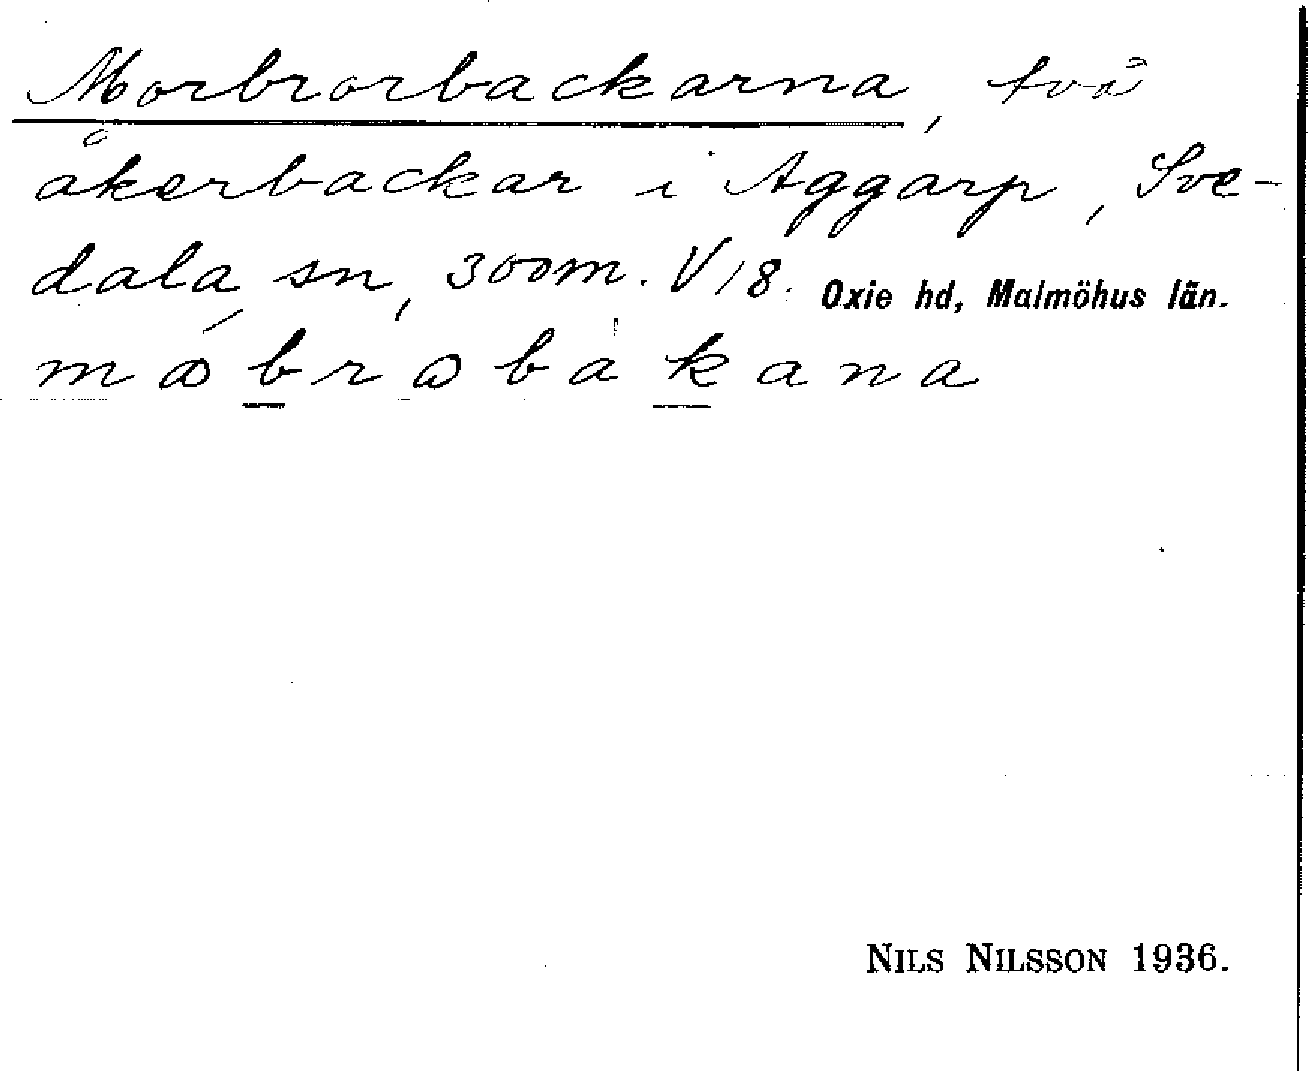 Morbrorbackarna, två
åkerbackar i Aggarp, Sve-
dala sn, 300m. V 18. Oxie hd, Malmöhus län.
NILS NILSSON 1936.